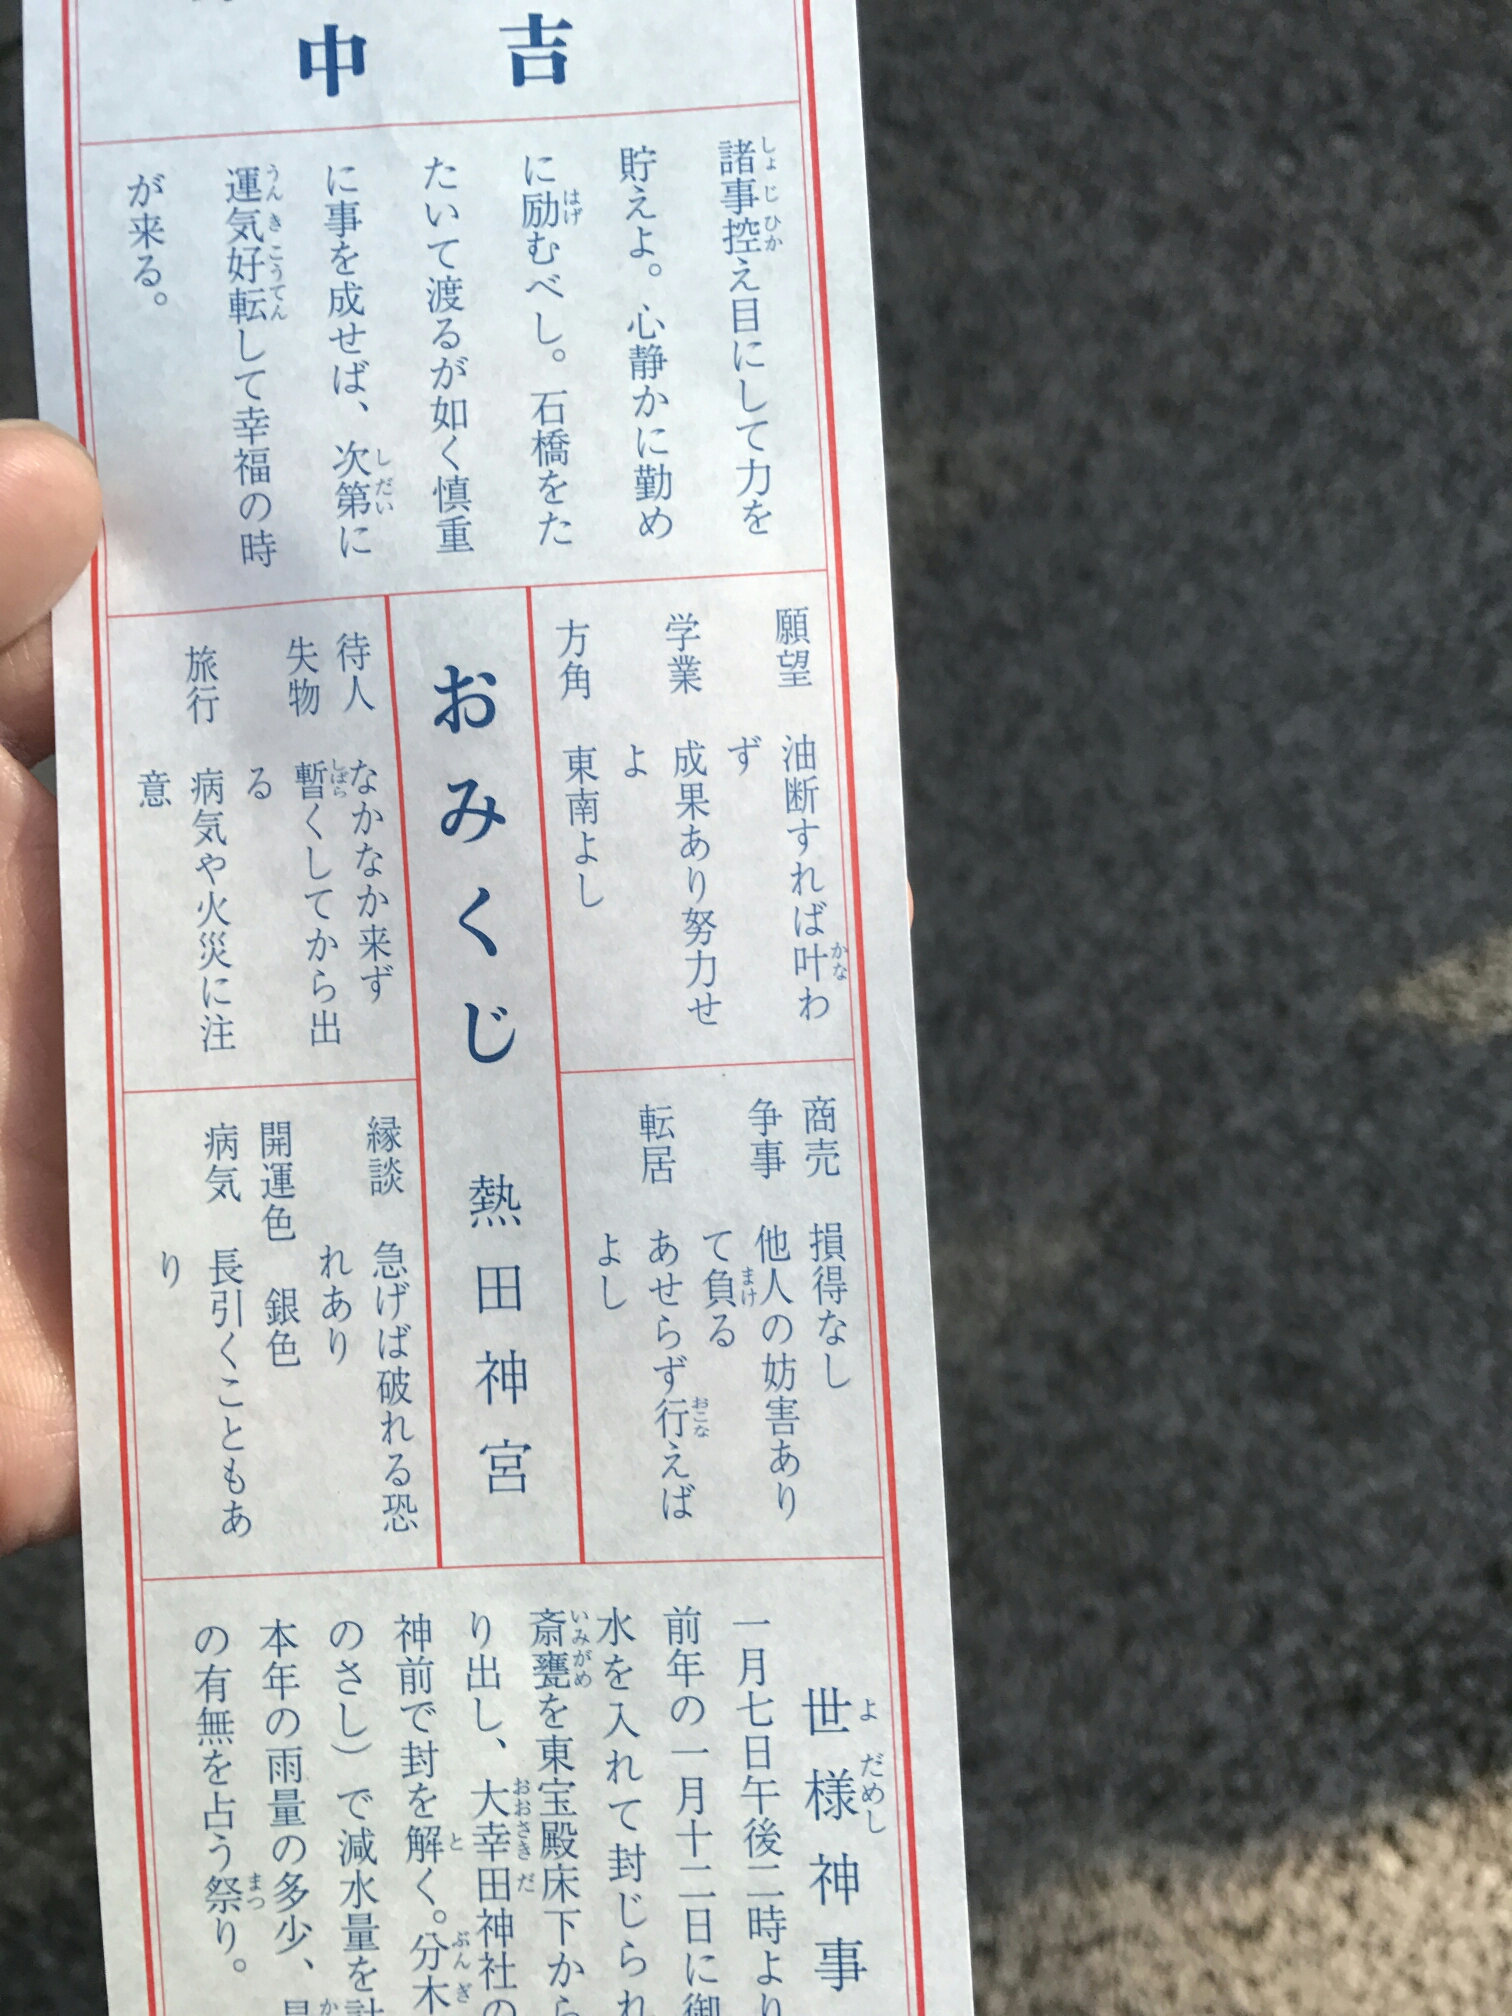 中吉
諸事控え目にして力を
貯えよ。心静かに勤め
に励むべし。石橋をた
たいて渡るが如く慎重
に事を成せば、次第に
運気好転して幸福の時
が来る。
願望 油断すれば叶わ
ず
学業 成果あり努力せ
よ
方角 東南よし
商売 損得なし
争事 他人の妨害あり
て負る
転居 あせらず行えば
よし
おみくじ 熱田神宮
待人 なかなか来ず
失物 暫くしてから出
る
旅行 病気や火災に注
意
縁談 急げば破れる恐
れあり
開運色 銀色
病気 長引くこともあ
り
世様神事
一月七日午後二時より
前年の一月十二日に御
水を入れて封じられ
斎甕を東宝殿床下から
り出し、大幸田神社の
神前で封を解く。分木
のさし）で減水量を計
本年の雨量の多少、
の有無を占う祭り。